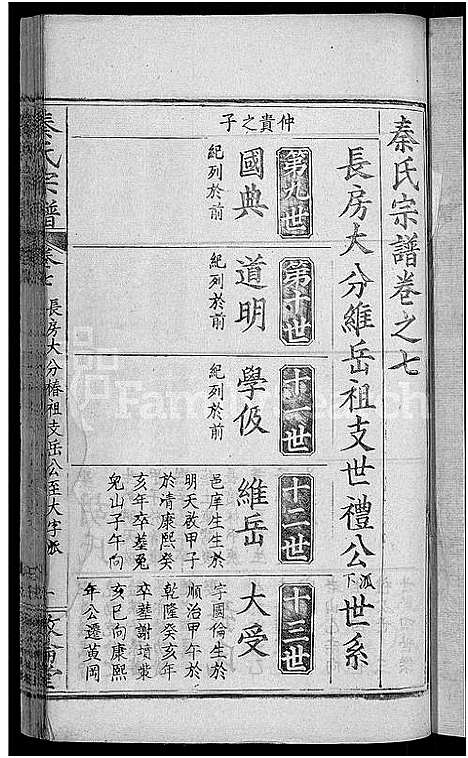 秦氏宗譜卷之七
長房大分維岳祖支世禮公派下世系
仲貴之子
第九世
國典
紀列於前
第十世
道明
紀列於前
十一世
學伋
紀列於前
十二世
維岳
邑庠生生於
明天啟甲子
於清康熙癸
亥年卒塟兔
兒山子午向
十三世
大受
字國倫生於
順治甲午於
乾隆癸亥年
卒塟謝墳裴
亥巳向康熙
年公遷黄岡
秦氏宗譜
卷七
長房大分椿祖支岳公至大字派
一
敦倫堂
FamilySearch